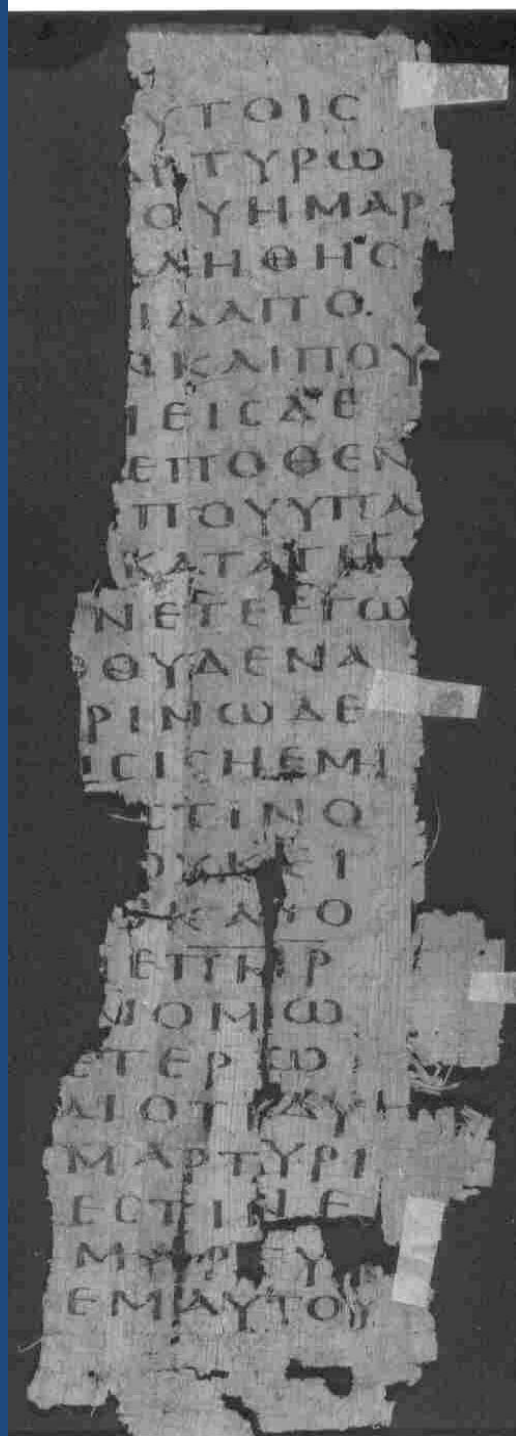 ΥΤΟΙϹ
ΑΡΤΥΡΩ
ΟΥΗΜΑΡ
ΑΛΗΘΗϹ
ΙΔΑΠΟ
ΝΚΑΙΠΟΥ
ΜΕΙϹΔΕ
ΕΠΟΘΕΝ
ΠΟΥΥΠΑ
ΚΑΤΑΤΗΝ
ΝΕΤΕΕΓΩ
ΟΥΔΕΝΑ
ΡΙΝΩΔΕ
ΙϹΙϹΗΕΜΗ
ϹΤΙΝΟ
ΟΥΚΕΙ
ΚΑΙΟ
ΕΠΗΡ
ΝΟΜΩ
ΕΤΕΡΩ
ΑΙΟΤΙΔΥ
ΜΑΡΤΥΡΙ
ΕϹΤΙΝΕ
ΕΜΑΥΤΟΥ